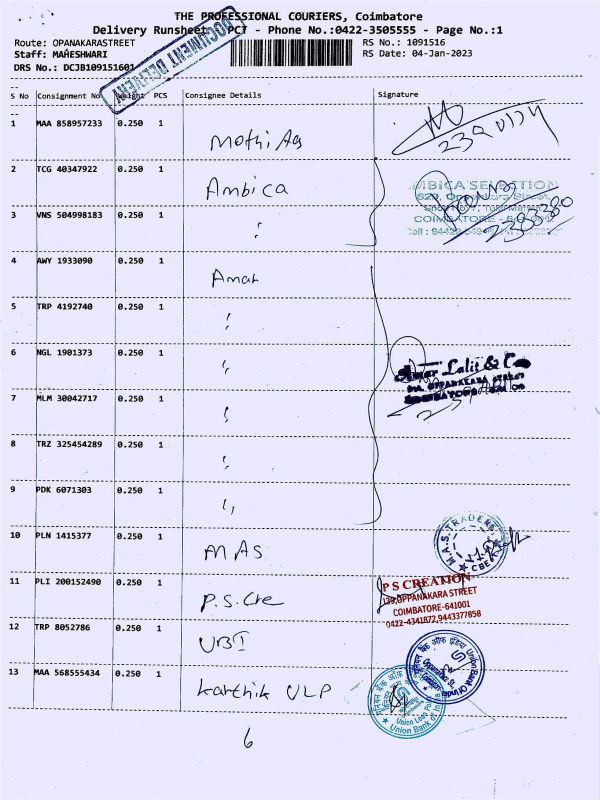 THE PROFESSIONAL COURIERS, Coimbatore
Delivery Runsheet PCT - Phone No.:0422-3505555 - Page No.:1
Route: OPANAKARASTREET
RS No.: 1091516
Staff: MAHESHWARI
RS Date: 04-Jan-2023
DRS No.: DCJB109151601
DOCUMENT DELIVERY
S No Consignment No Weight PCS Consignee Details Signature
1 MAA 858957233 0.250 1 Mothi
2 TCG 40347922 0.250 1 Ambica
AMBICA SELECTION
3 VNS 504998183 0.250 1 "
COIMBATORE
4 AWY 1933090 0.250 1 Amar
5 TRP 4192740 0.250 1 "
6 NGL 1901373 0.250 1 "
Amar Lalit & Co
OPPANAKARA STREET
7 MLM 30042717 0.250 1 "
8 TRZ 325454289 0.250 1 "
9 PDK 6071303 0.250 1 "
10 PLN 1415377 0.250 1 MAS
M.A.S. TRADERS
CBE
11 PLI 200152490 0.250 1 P.S. Cre
P S CREATION
139, OPPANAKARA STREET
COIMBATORE-641001
0422-4341872,9443377858
12 TRP 8052786 0.250 1 UBI
यूनियन बैंक ऑफ इंडिया Union Bank Of India
13 MAA 568555434 0.250 1 Karthik ULP
Union Loan
Union Bank of India
6